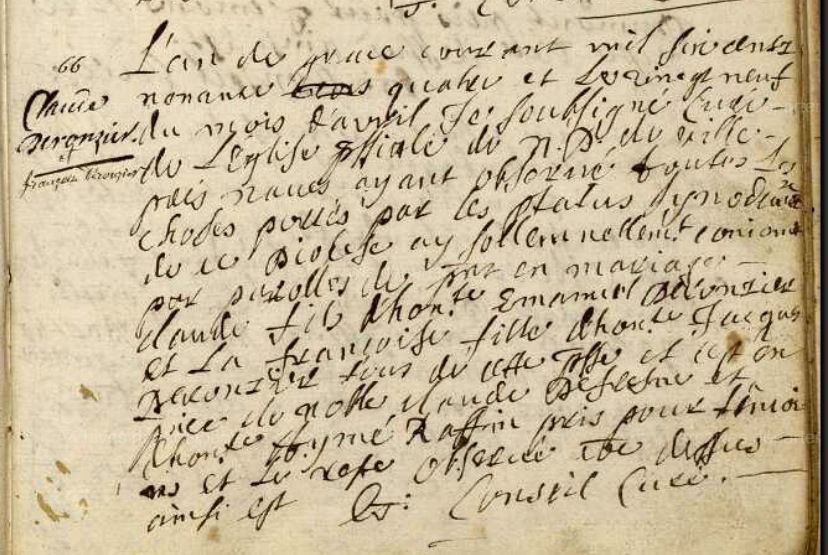 66
Claude
Deronzier
et
françoise Deronzier
L'an de grace courant mil six cents
nonante trois quatre et le vingt neuf
du mois d'avril Je soubsigné Curé
de L'Eglise pffiale de N. D. de ville
pres naues ayant obserué toutes les
choses portés par les status synodaux
de ce Diocese ay sollemnellemt conioint
par parolles de pnt en mariage
claude fils d'honte Emanuel Deronzier
et La françoise fille d'honte Jacques
Deronzier tous de cette pffe et cest en
pnce de noble claude Defresne et
d'honte Aymé Raffin pris pour témoi
ns et le reste obserué que dessus
ainsi est Conseil Curé.